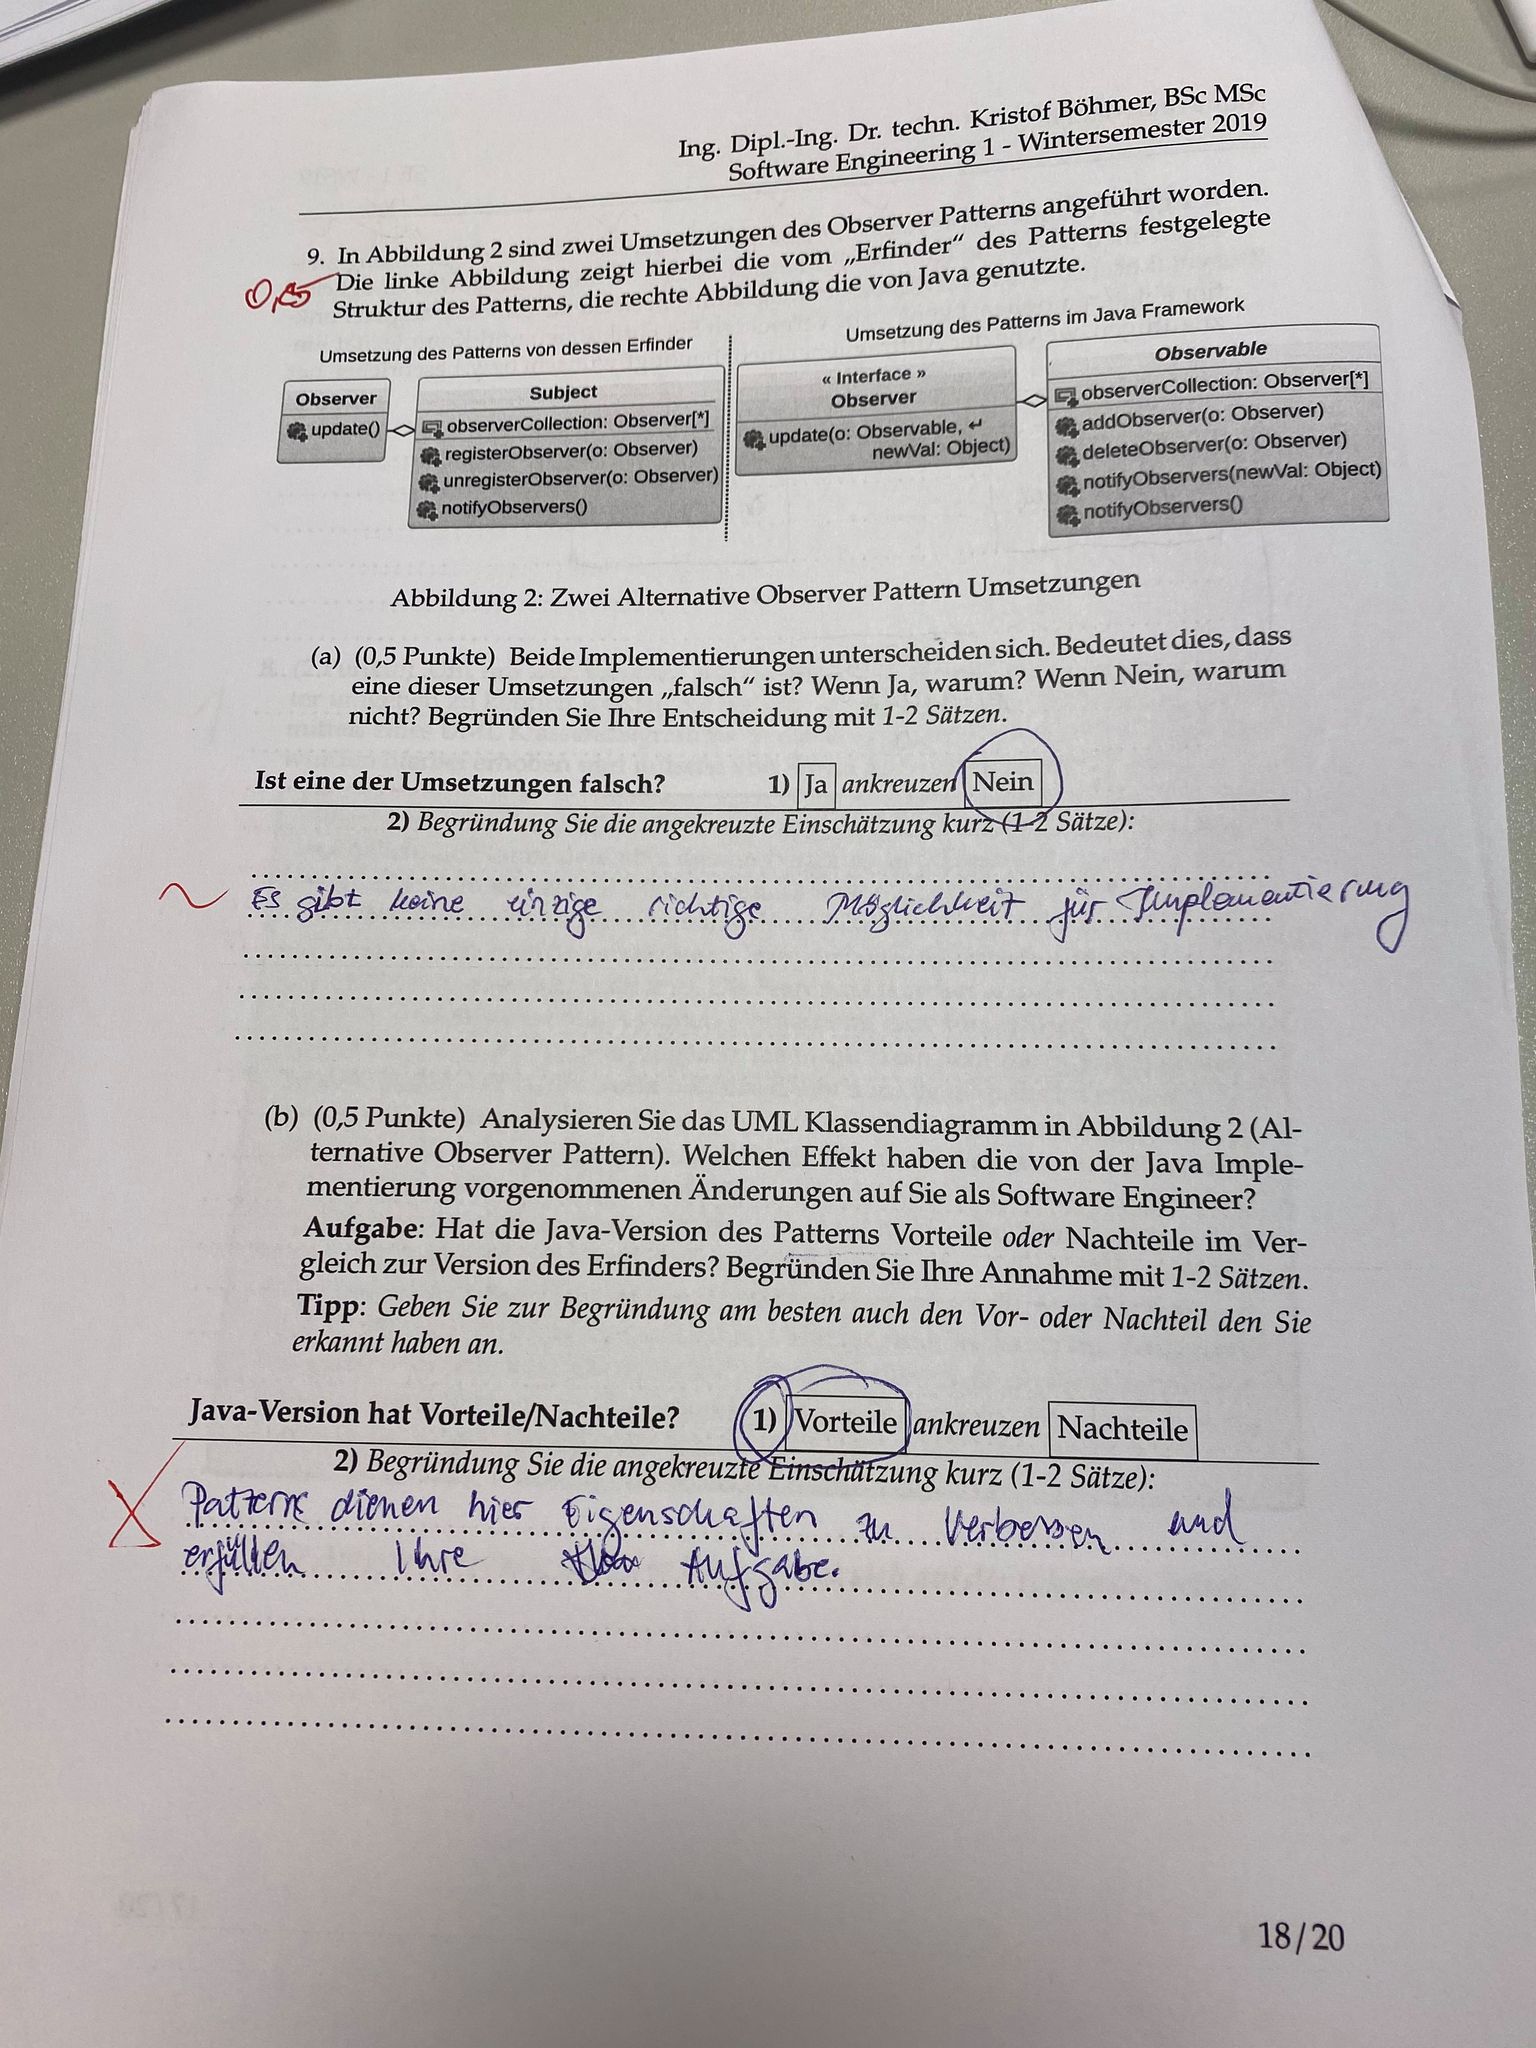 Ing. Dipl.-Ing. Dr. techn. Kristof Böhmer, BSc MSc
Software Engineering 1 - Wintersemester 2019
9. In Abbildung 2 sind zwei Umsetzungen des Observer Patterns angeführt worden.
Die linke Abbildung zeigt hierbei die vom „Erfinder“ des Patterns festgelegte
Struktur des Patterns, die rechte Abbildung die von Java genutzte.
Umsetzung des Patterns von dessen Erfinder
Observer
update()
Subject
observerCollection: Observer[*]
registerObserver(o: Observer)
unregisterObserver(o: Observer)
notifyObservers()
Umsetzung des Patterns im Java Framework
« Interface »
Observer
update(o: Observable, ↵
newVal: Object)
Observable
observerCollection: Observer[*]
addObserver(o: Observer)
deleteObserver(o: Observer)
notifyObservers(newVal: Object)
notifyObservers()
Abbildung 2: Zwei Alternative Observer Pattern Umsetzungen
(a) (0,5 Punkte) Beide Implementierungen unterscheiden sich. Bedeutet dies, dass
eine dieser Umsetzungen „falsch“ ist? Wenn Ja, warum? Wenn Nein, warum
nicht? Begründen Sie Ihre Entscheidung mit 1-2 Sätzen.
Ist eine der Umsetzungen falsch? 1) Ja ankreuzen Nein
2) Begründung Sie die angekreuzte Einschätzung kurz (1-2 Sätze):
Es gibt keine einzige richtige Möglichkeit für Implementierung
(b) (0,5 Punkte) Analysieren Sie das UML Klassendiagramm in Abbildung 2 (Al-
ternative Observer Pattern). Welchen Effekt haben die von der Java Imple-
mentierung vorgenommenen Änderungen auf Sie als Software Engineer?
Aufgabe: Hat die Java-Version des Patterns Vorteile oder Nachteile im Ver-
gleich zur Version des Erfinders? Begründen Sie Ihre Annahme mit 1-2 Sätzen.
Tipp: Geben Sie zur Begründung am besten auch den Vor- oder Nachteil den Sie
erkannt haben an.
Java-Version hat Vorteile/Nachteile? 1) Vorteile ankreuzen Nachteile
2) Begründung Sie die angekreuzte Einschätzung kurz (1-2 Sätze):
Patterns dienen hier Eigenschaften zu verbessen und
erfüllen Ihre Aufgabe.
18/20